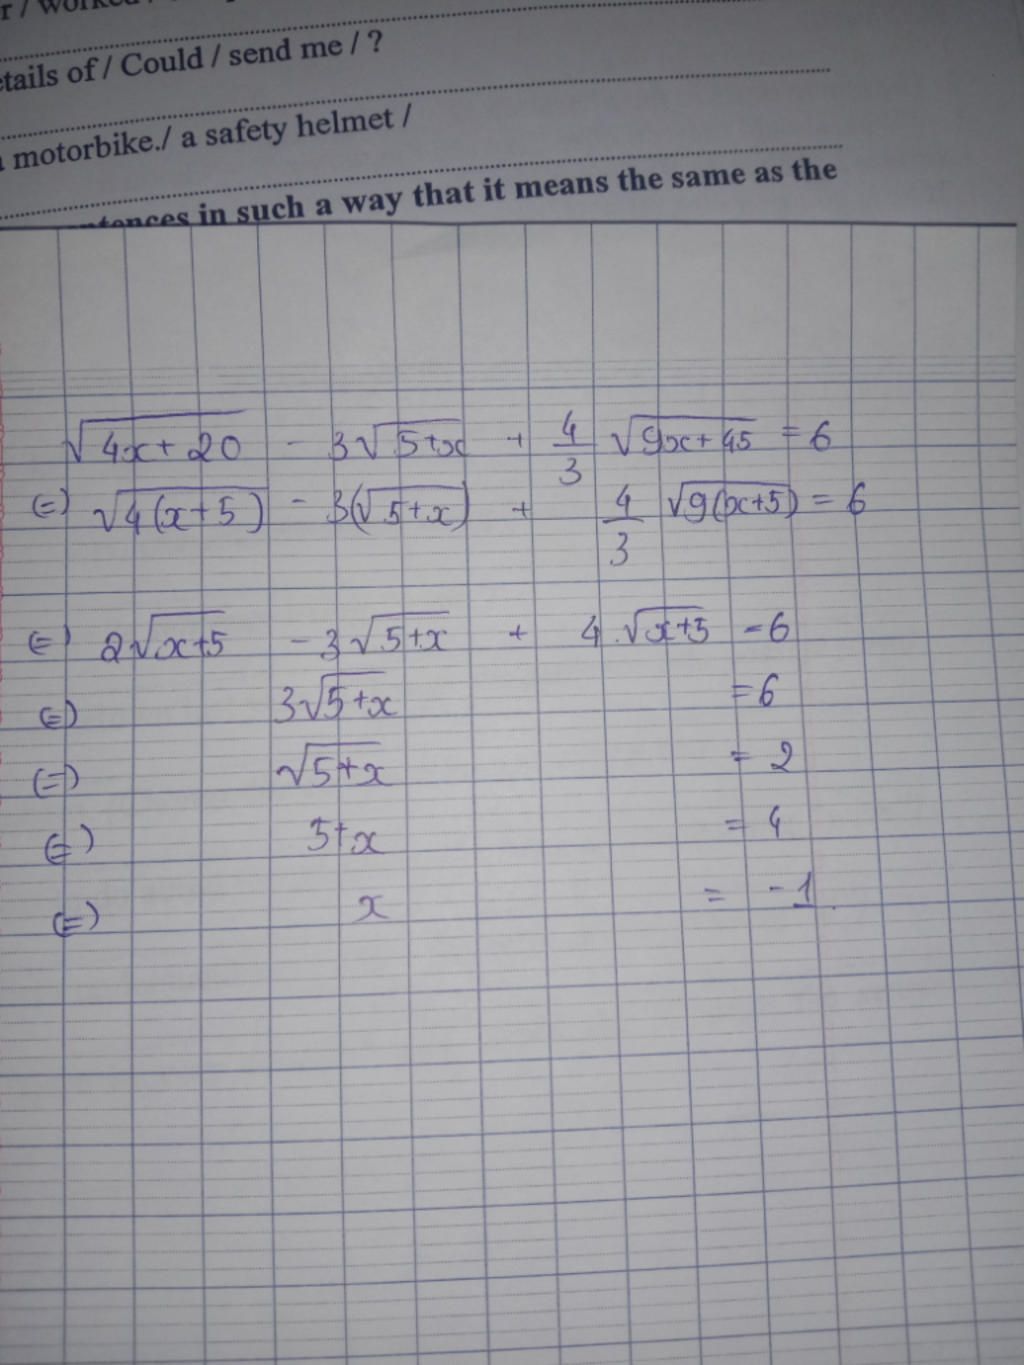 r / worked
etails of / Could / send me / ?
a motorbike./ a safety helmet /
entences in such a way that it means the same as the
√(4x + 20) - 3√(5+x) + 4/3 √(9x+45) = 6
(=) √(4(x+5)) - 3(√(5+x)) + 4/3 √(9(x+5)) = 6
(=) 2√(x+5) - 3√(5+x) + 4.√(x+5) = 6
(=) 3√(5+x) = 6
(=) √(5+x) = 2
(=) 5+x = 4
(=) x = -1